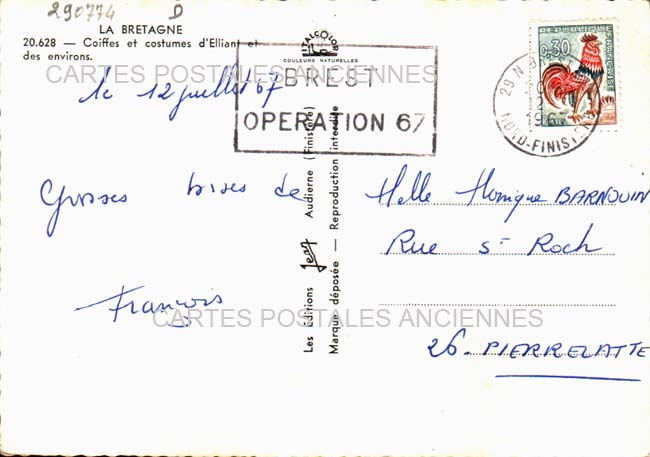 290774 D
LA BRETAGNE
20.628 — Coiffes et costumes d'Elliant et
des environs.
CARTES POSTALES ANCIENNES
le 12 juillet 67
Grosses bises de
François
CARTES POSTALES ANCIENNES
COULEURS NATURELLES
BREST
OPERATION 67
Les Éditions Jean Audierne (Finistère)
Marque déposée — Reproduction interdite
0,30
29 N
1967
NORD-FINISTERE
Melle Monique BARNOUIN
Rue St Roch
26. PIERRELATTE